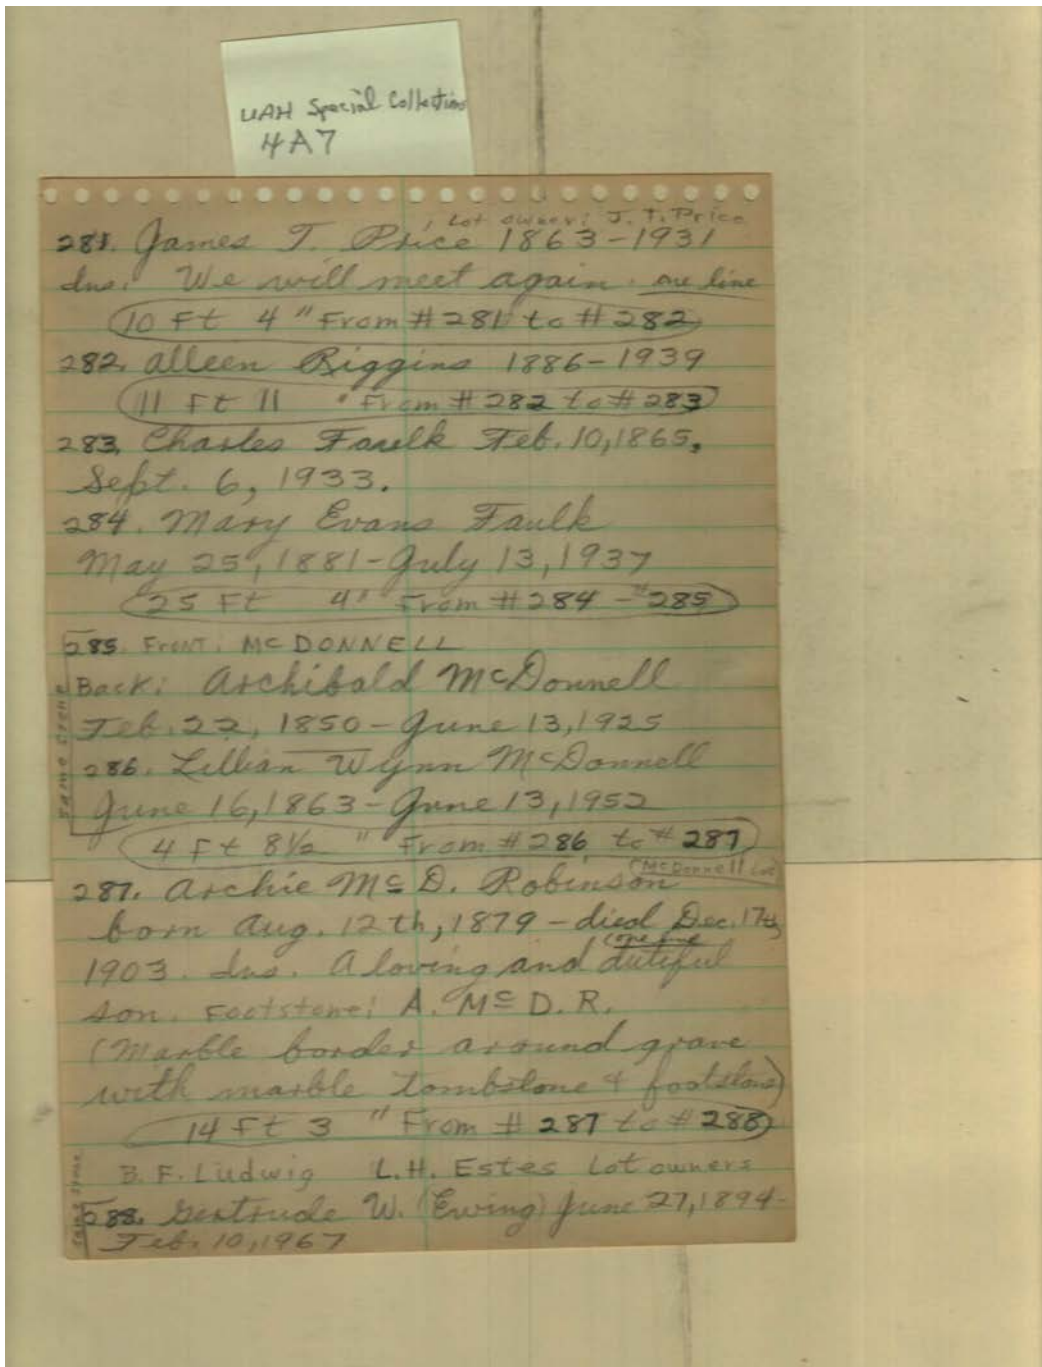 UAH Special Collections
4A7
Lot owner: J. T. Price
281. James T. Price 1863-1931
Ins. We will meet again. one line
10 Ft 4 " From #281 to #282
282. Alleen Riggins 1886-1939
11 Ft 11 " From #282 to #283
283. Charles Faulk Feb. 10, 1865,
Sept. 6, 1933.
284. Mary Evans Faulk
May 25, 1881-July 13, 1937
25 Ft 4" From #284 - #285
285. Front: McDONNELL
Back: Archibald McDonnell
Feb. 22, 1850 - June 13, 1925
286. Lillian Wynn McDonnell
June 16, 1863 - June 13, 1952
Same stone
4 Ft 8½ " From #286 to #287
(McDonnell Lot)
287. Archie McD. Robinson
born Aug. 12th, 1879 - died Dec. 17th,
1903. Ins. A loving and dutiful
(one line
son. Footstone: A. McD. R.
(Marble border around grave
with marble tombstone & footstone)
14 Ft 3 " From #287 to #288
B. F. Ludwig L. H. Estes Lot owners
288. Gertrude W. (Ewing) June 27, 1894-
Feb. 10, 1967
Same stone